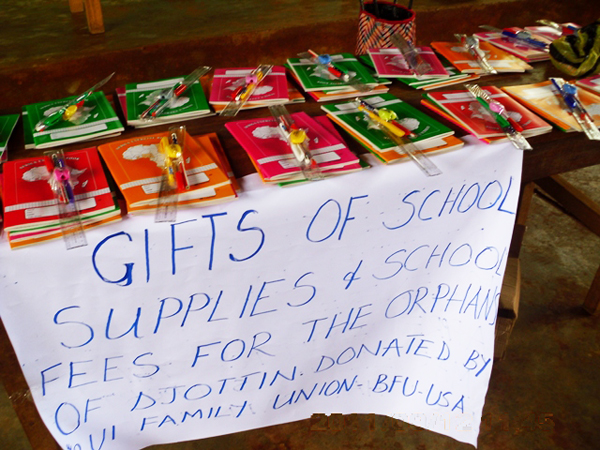 GIFTS OF SCHOOL
SUPPLIES & SCHOOL
FEES FOR THE ORPHANS
OF DJOTTIN. DONATED BY
FAMILY UNION - BFU - USA